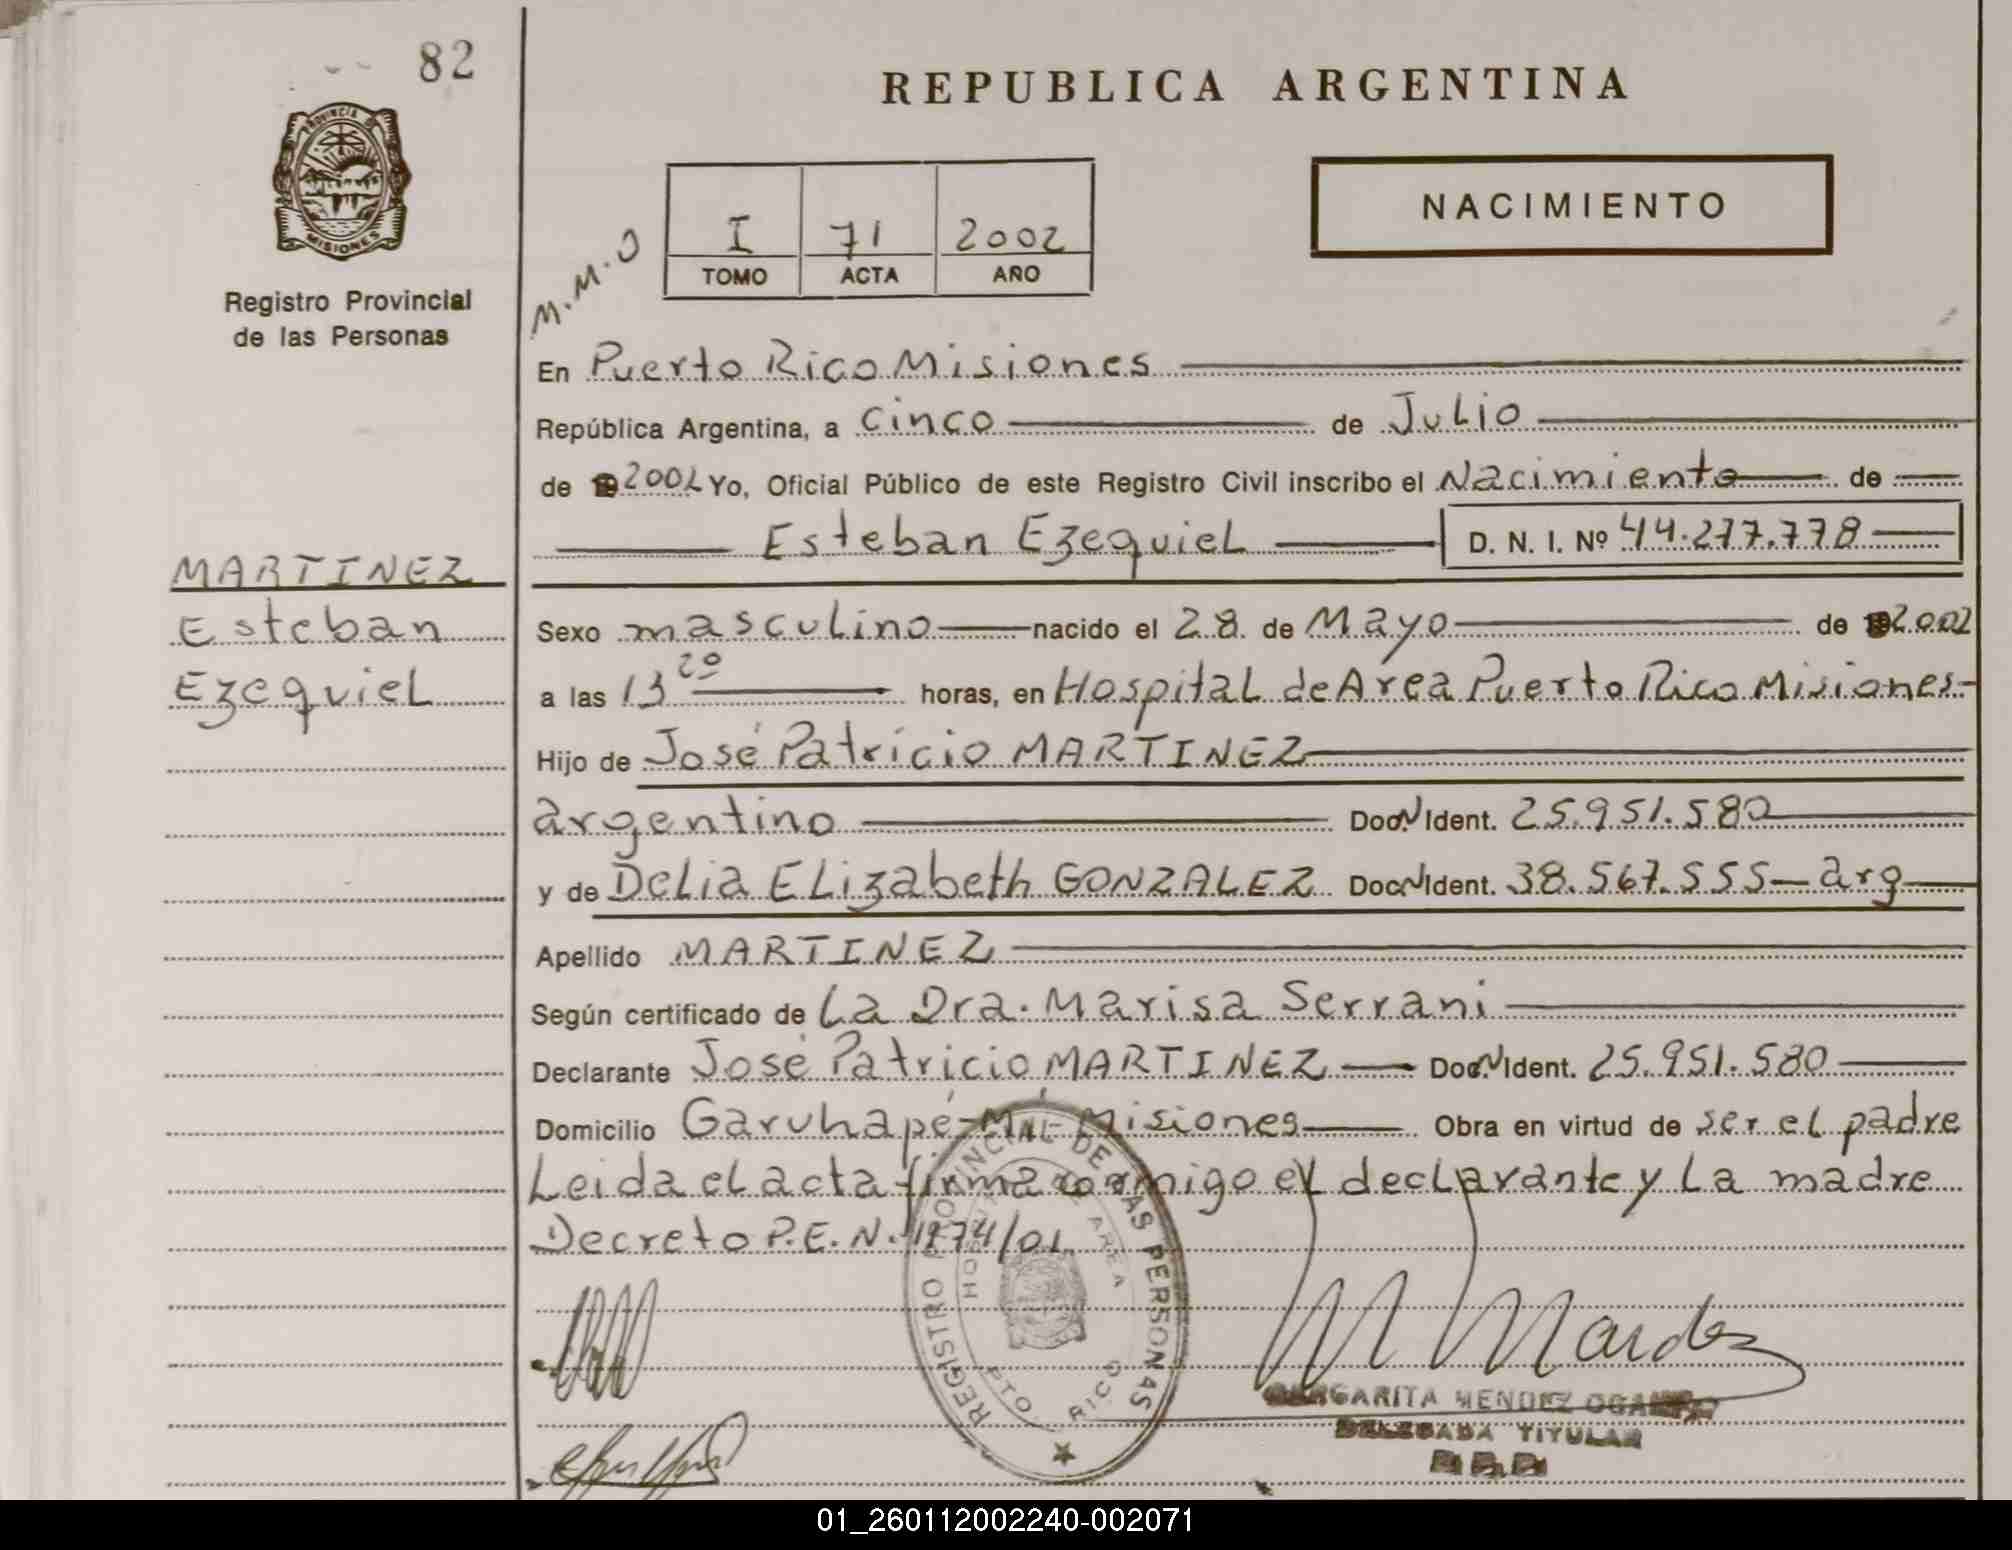 82
REPUBLICA ARGENTINA
PROVINCIA DE
MISIONES
Registro Provincial
de las Personas
I 71 2002
TOMO ACTA AÑO
NACIMIENTO
M.M.O
En Puerto Rico Misiones
República Argentina, a cinco de Julio
de 2002 Yo, Oficial Público de este Registro Civil inscribo el Nacimiento de
Esteban Ezequiel D. N. I. Nº 44.277.778
MARTINEZ
Esteban
Ezequiel
Sexo masculino nacido el 28 de Mayo de 2002
a las 13 20 horas, en Hospital de Area Puerto Rico Misiones
Hijo de José Patricio MARTINEZ
argentino Doc. N Ident. 25.951.580
y de Delia Elizabeth GONZALEZ Doc. N Ident. 38.567.555 - arg
Apellido MARTINEZ
Según certificado de La Dra. Marisa Serrani
Declarante José Patricio MARTINEZ Doc. N Ident. 25.951.580
Domicilio Garuhapé-Mí Misiones Obra en virtud de ser el padre
Leida el acta firma conmigo el declarante y La madre
Decreto P.E.N. 1274/01
REGISTRO PROVINCIAL DE LAS PERSONAS
HOSPITAL DE AREA
PTO. RICO
MARGARITA MENDEZ OCAMPO
DELEGADA TITULAR
01_260112002240-002071